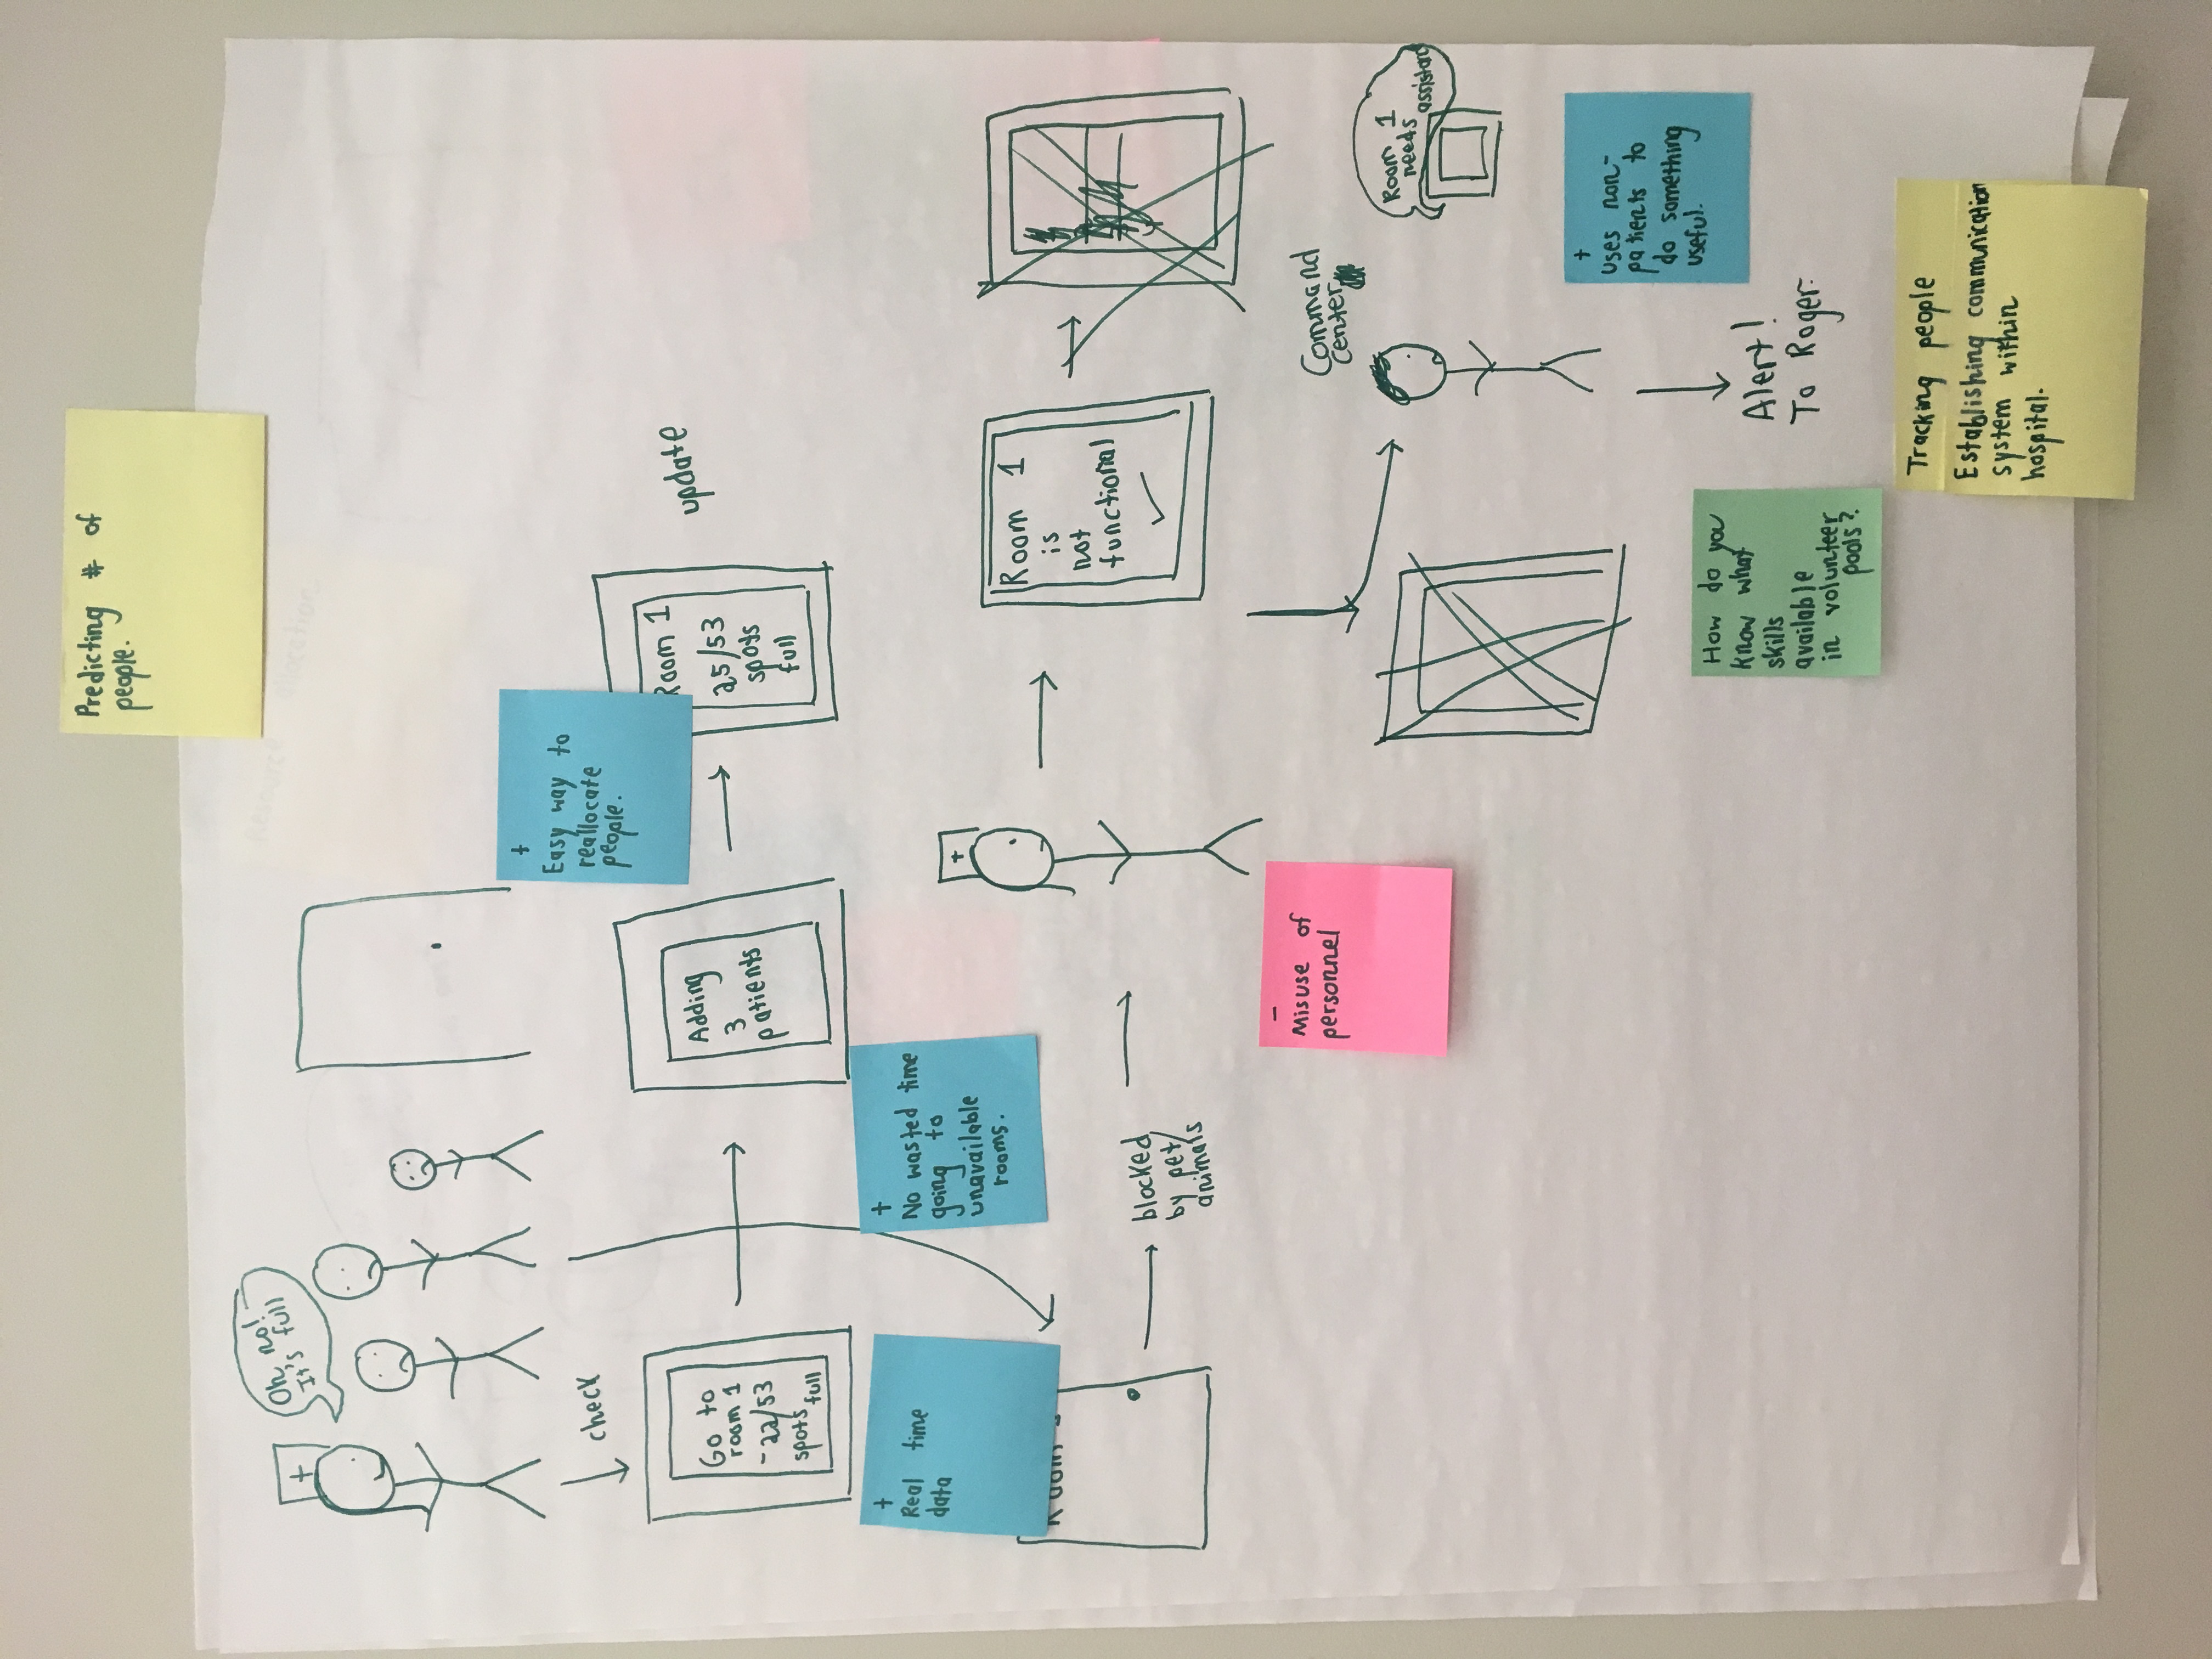 Predicting # of
people.
Oh no!
It's full
+
check
+
Easy way to
reallocate
people.
Go to
room 1
-22/53
spots
full
Adding
3
patients
Room 1
25/53
spots
full
update
+
Real time
data
+
No wasted time
going to
unavailable
rooms.
+
Room
blocked
by pet/
animals
Room 1
is
not
functional
-
Misuse of
personnel
Command
center
Room 1
needs
+
uses non-
patients to
do something
useful.
How do you
know what
skills
available
in volunteer
pools?
Alert!
To Roger.
Tracking people
Establishing communication
system within
hospital.
Resource allocation